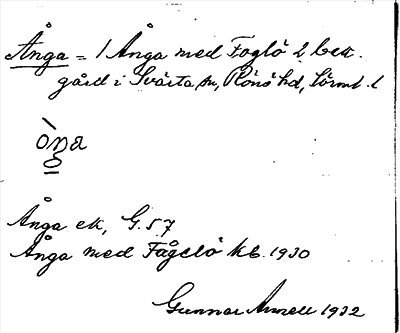 Ånga = 1 Ånga med Foglö 2 bek.
gård i Svärta sn, Rönö hd, Sörml. l
òŋa
Ånga ek, G. 57
Ånga med Fågelö kb. 1930
Gunnar Arnell 1932